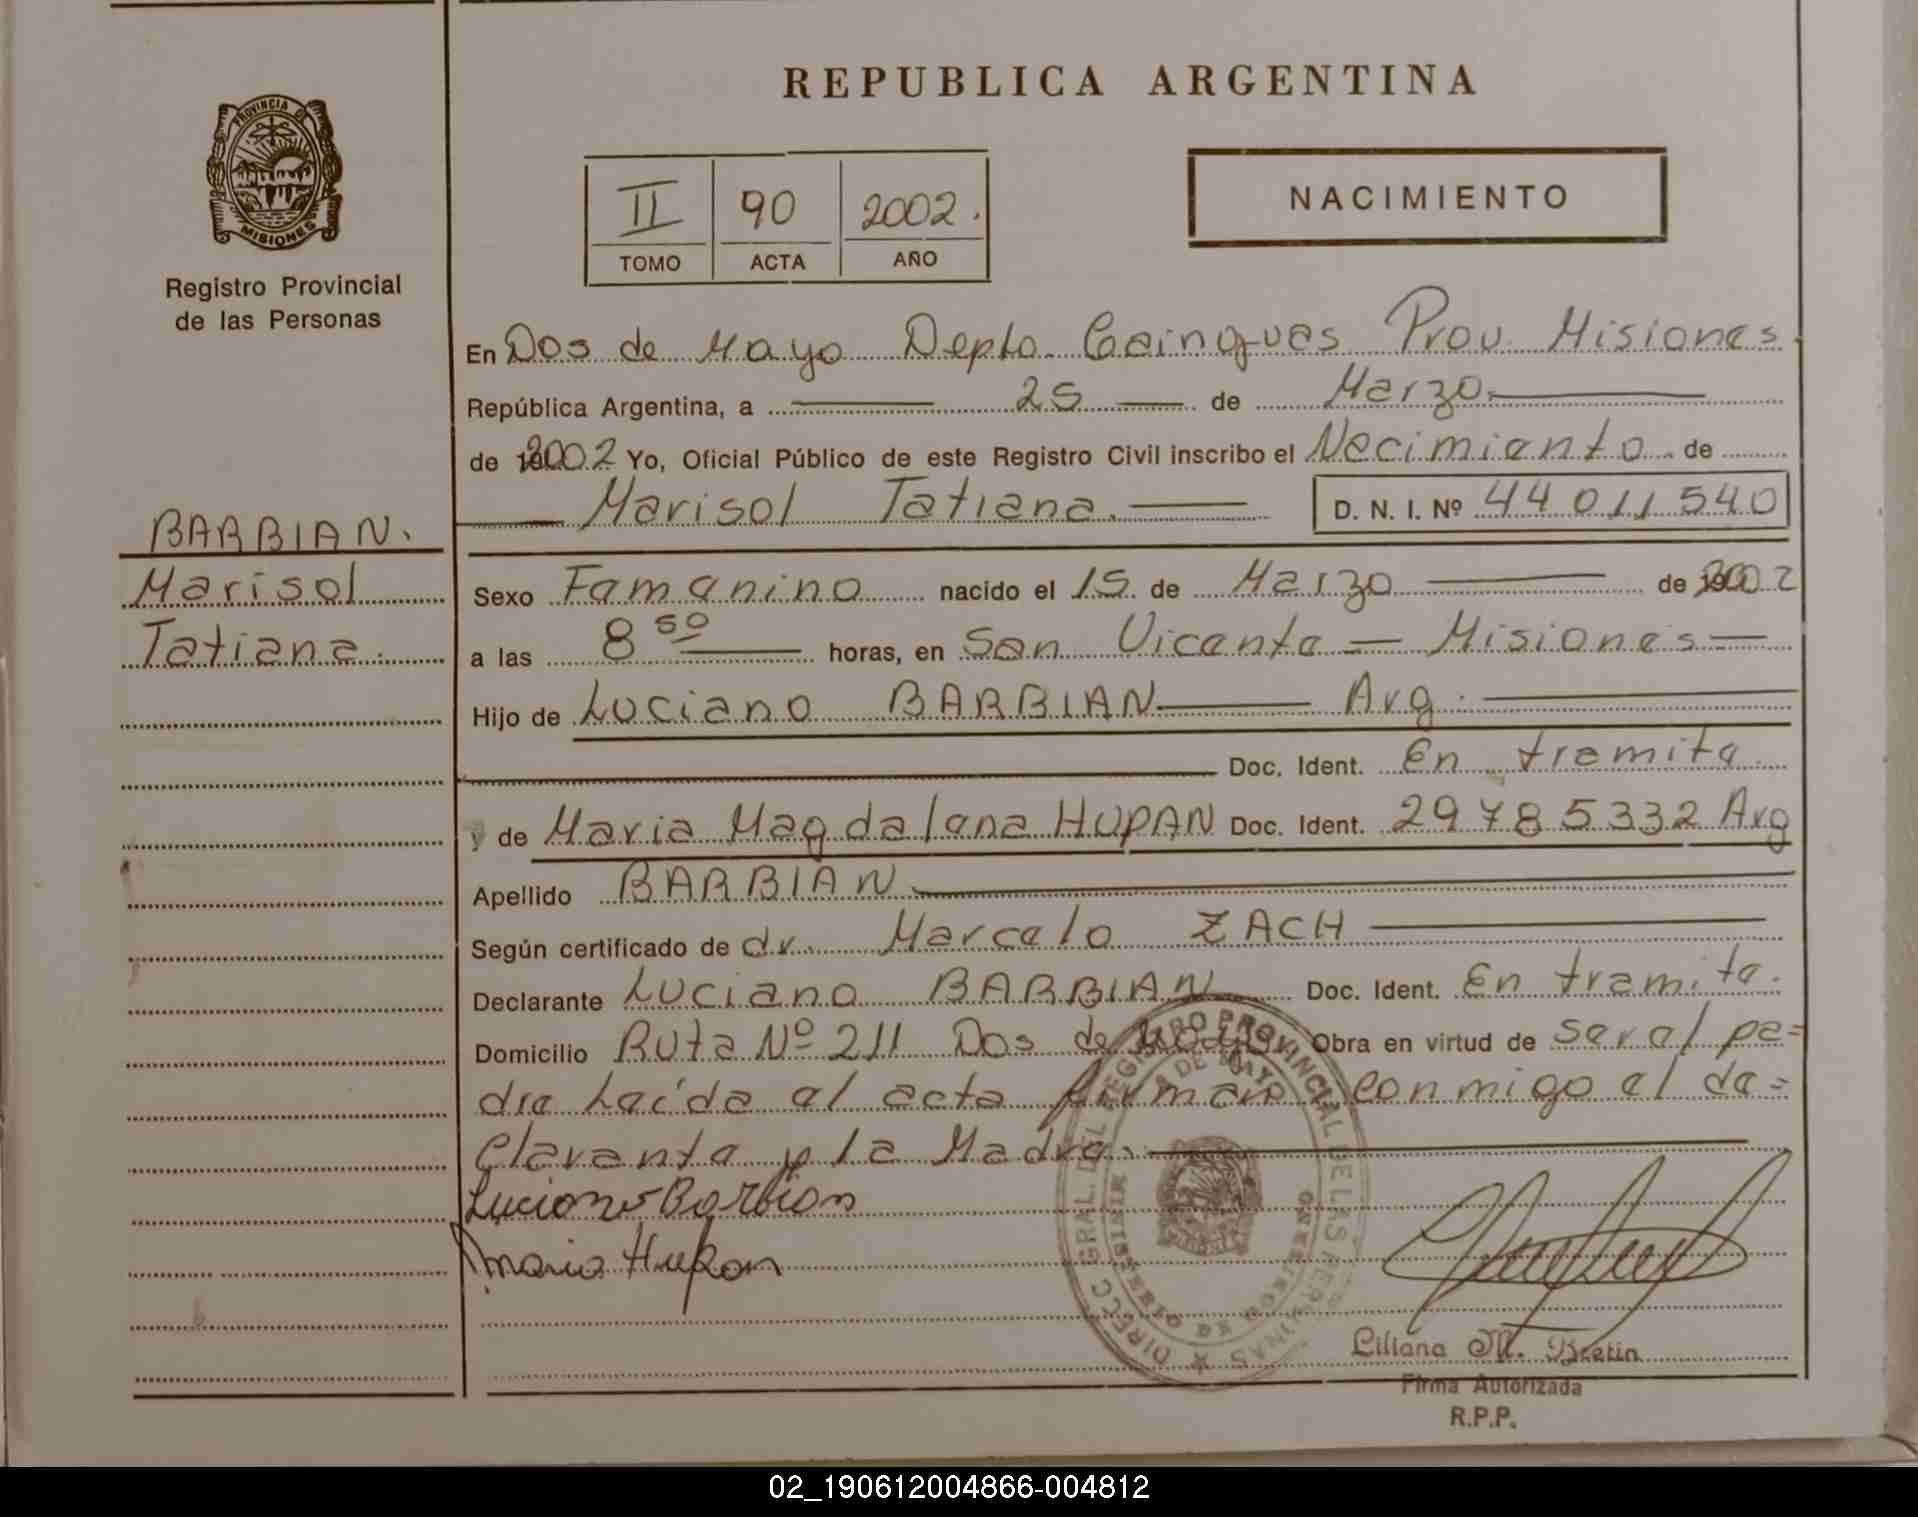 REPUBLICA ARGENTINA
PROVINCIA DE
MISIONES
Registro Provincial
de las Personas
II 90 2002.
TOMO ACTA AÑO
NACIMIENTO
En Dos de Mayo Depto. Cainguas Prov. Misiones
República Argentina, a 25 de Marzo
de 2002 Yo, Oficial Público de este Registro Civil inscribo el Nacimiento de
Marisol Tatiana. D. N. I. Nº 44 011 540
BARBIAN.
Marisol
Tatiana.
Sexo Femenino nacido el 15 de Marzo de 2002
a las 8 50 horas, en San Vicente - Misiones
Hijo de Luciano BARBIAN Arg.
Doc. Ident. En tramite
y de Maria Magdalena HUPAN Doc. Ident. 29785332 Arg
Apellido BARBIAN
Según certificado de dr. Marcelo ZACH
Declarante Luciano BARBIAN Doc. Ident. En tramite.
Domicilio Ruta Nº 211 Dos de Mayo Obra en virtud de ser el pa=
dre Leída el acta firman conmigo el de=
clarante y la Madre.
Luciano Barbian
Maria Hupan
DIRECC GRAL. DEL REGISTRO PROVINCIAL DE LAS PERSONAS
DE MAYO
MISIONES
Liliana M. Bretin
Firma Autorizada
R.P.P.
02_190612004866-004812